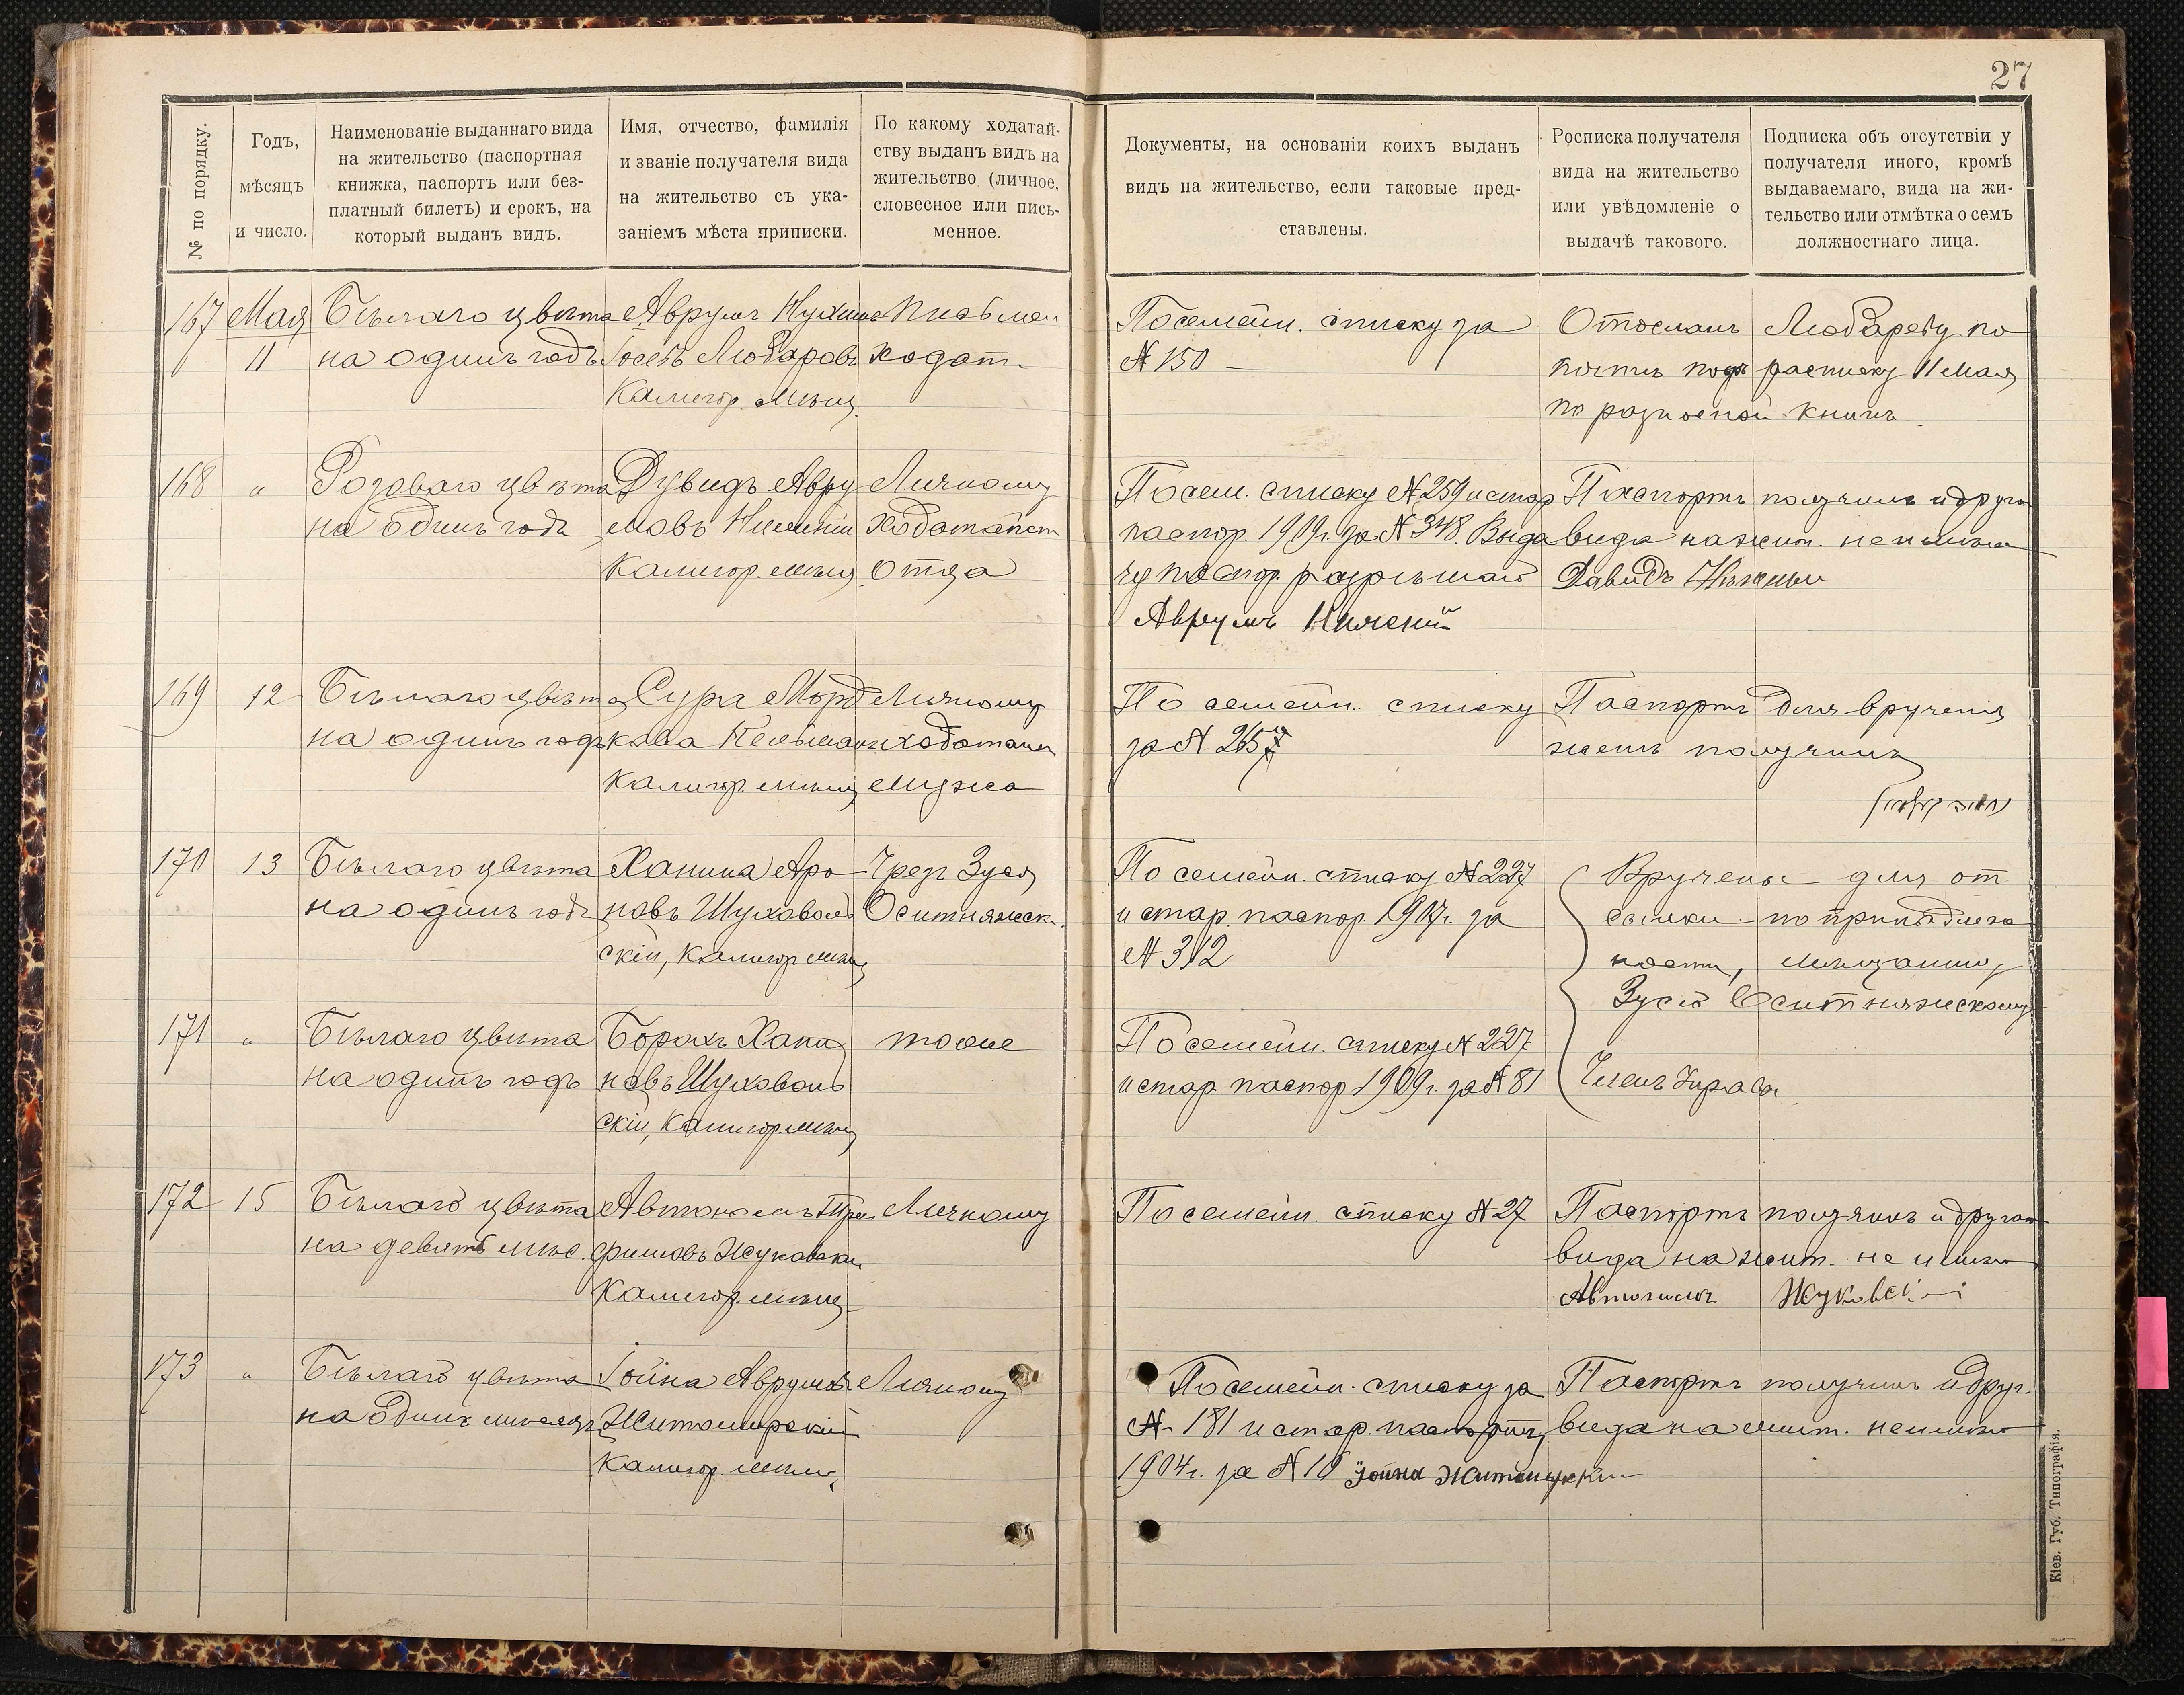 27
№ по порядку.
Годъ,
мѣсяцъ
и число.
Наименованіе выданнаго вида
на жительство (паспортная
книжка, паспортъ или без-
платный билетъ) и срокъ, на
который выданъ видъ.
Имя, отчество, фамилія
и званіе получателя вида
на жительство съ ука-
заніемъ мѣста приписки.
По какому ходатай-
ству выданъ видъ на
жительство (личное,
словесное или пись-
менное.
Документы, на основаніи коихъ выданъ
видъ на жительство, если таковые пред-
ставлены.
Росписка получателя
вида на жительство
или увѣдомленіе о
выдачѣ такового.
Подписка объ отсутствіи у
получателя иного, кромѣ
выдаваемаго, вида на жи-
тельство или отмѣтка о семъ
должностнаго лица.
167
Мая
11
Бѣлаго цвѣта
на одинъ годъ
Аврумъ Нухим
Іосевъ Любаровъ
Калигор. мѣщ.
Письмен
ходат.
По семейн. списку за
№ 150 —
Отосланъ Любарову по
почтѣ подъ расписку 11 Мая
по разносной книгѣ
168
"
Розоваго цвѣта
на одинъ годъ
Дувидъ Авру
мовъ
Калигор. мѣщ
Личному
ходатайст
отца
По сем. списку № 259 и стар
паспор. 1909г. за № 348. Выда
чу паспор. разрѣшаю
Аврумъ
Паспортъ получилъ и друго
вида на жит. не имѣю
Давидъ
169
12
Бѣлаго цвѣта
на одинъ годъ
Сура Морд
кова
Калигор. мѣщ
Личному
ходатай
мужа
По семейн. списку
за № 265
Паспортъ для врученія
женѣ получилъ
170
13
Бѣлаго цвѣта
на одинъ годъ
Ханина Аро
новъ Шуховол
скій, Калигор мѣщ
Чрез Зуся
Оситняжск.
По семейн. списку № 227
и стар. паспор. 1907г. за
№ 312
Вручены для от
сылки по принадлеж
ности, мѣщанину
Зусю Оситняжскому
171
"
Бѣлаго цвѣта
на одинъ годъ
Борохъ Хани
новъ Шуховол
скій, Калигор. мѣщ
тоже
По семейн. списку № 227
и стар паспор 1909г. за № 81
Членъ Управы
172
15
Бѣлаго цвѣта
на девять мѣс.
Автономъ Тро
фимовъ Жуковски
Калигор. мѣщ
Личному
По семейн. списку № 27
Паспортъ получилъ и другаго
вида на жит. не имѣю
Автономъ Жуковскій
173
"
Бѣлаго цвѣта
на одинъ мѣсяцъ
Іойна Аврумов
Житомирскій
Калигор. мѣщ.
Личному
По семейн. списку за
№ 181 и стар. паспорту
1904г. за № 10 Іойна Житомирскій
Паспортъ получилъ и друг.
вида на жит. не имѣю
Кіев. Губ. Типографія.